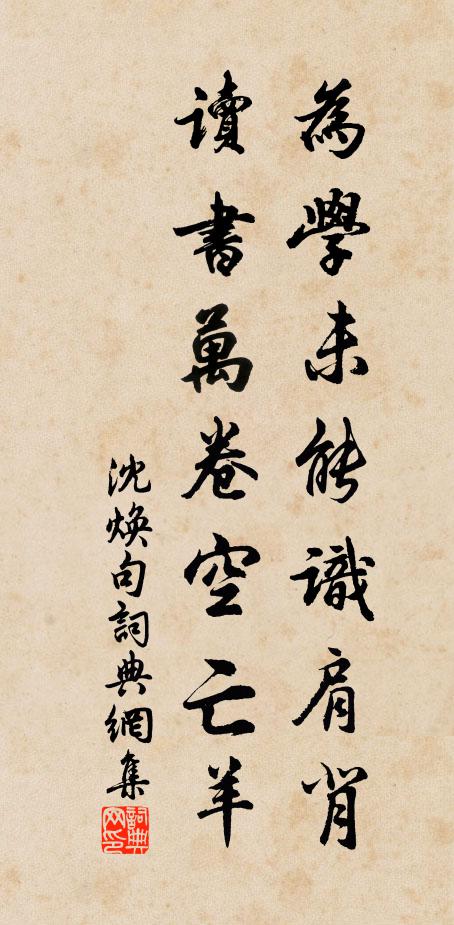 為學未能識肩背
讀書萬卷空亡羊
沈煥句詞典網集
詞典网印